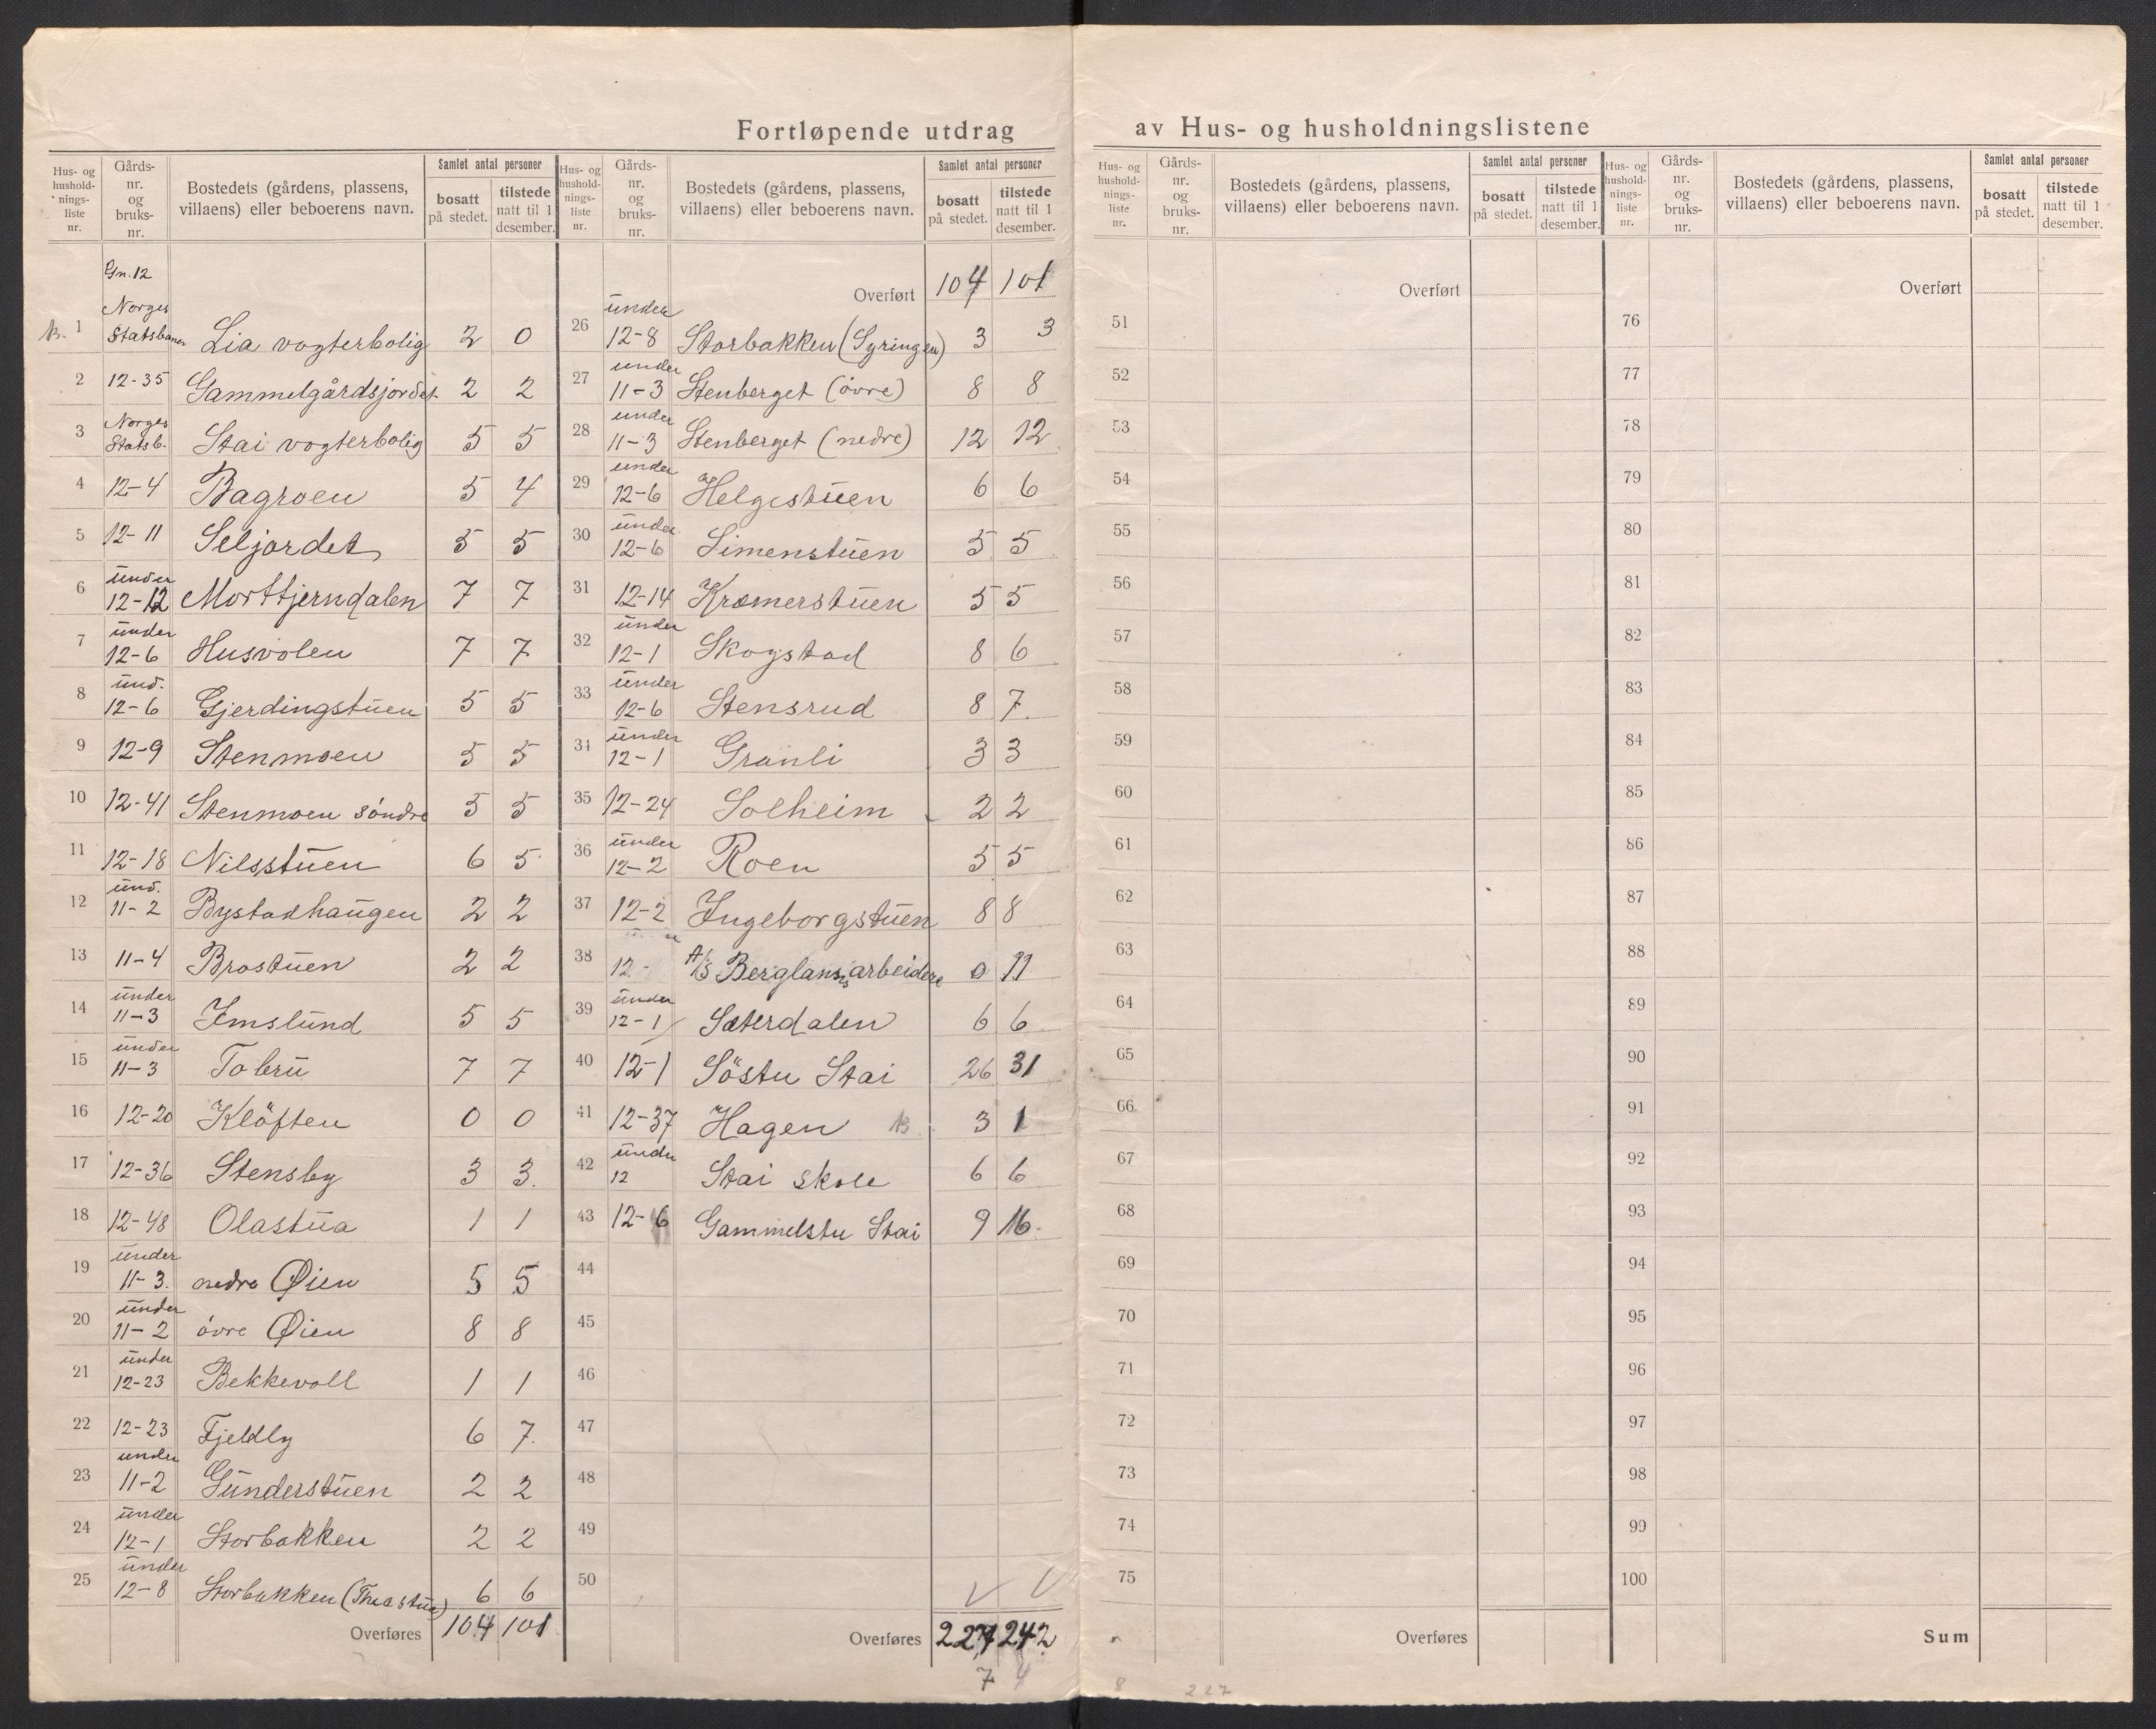 Fortløpende utdrag av Hus- og husholdningslistene
Hus- og hushold- nings- liste nr. Gårds- nr. og bruks- nr. Bostedets (gårdens, plassens, villaens) eller beboerens navn. Samlet antal personer bosatt på stedet. tilstede natt til 1 desember.
Gn. 12
1 Norges Statsbaner Lia vogterbolig 2 0
2 12-35 Gammelgårdsjordet 2 2
3 Norges Statsb. Stai vogterbolig 5 5
4 12-4 Bagroen 5 4
5 12-11 Seljordet 5 5
6 under 12-12 Morttjerndalen 7 7
7 under 12-6 Husvolen 7 7
8 und. 12-6 Gjerdingstuen 5 5
9 12-9 Stenmoen 5 5
10 12-41 Stenmoen söndre 5 5
11 12-18 Nilsstuen 6 5
12 und. 11-2 Bystadhaugen 2 2
13 11-4 Brostuen 2 2
14 under 11-3 Imslund 5 5
15 under 11-3 Tobru 7 7
16 12-20 Klöften 0 0
17 12-36 Stensby 3 3.
18 12-48 Olastua 1 1
19 under 11-3. nedre Øien 5 5
20 under 11-2 övre Øien 8 8
21 under 12-23 Bekkevoll 1 1
22 12-23 Fjeldly 6 7.
23 under 11-2 Gunderstuen 2 2
24 under 12-1 Storbakken 2 2
25 under 12-8 Storbakken (Theastua) 6 6
Overføres 104 101
Hus- og hushold- nings- liste nr. Gårds- nr. og bruks- nr. Bostedets (gårdens, plassens, villaens) eller beboerens navn. Samlet antal personer bosatt på stedet. tilstede natt til 1 desember.
Overført 104 101
26 under 12-8 Storbakken (Syringen) 3 3
27 under 11-3 Stenberget (övre) 8 8
28 under 11-3 Stenberget (nedre) 12 12
29 under 12-6 Helgestuen 6 6
30 under 12-6 Simenstuen 5 5
31 12-14 Kræmerstuen 5 5
32 under 12-1 Skogstad 8 6
33 under 12-6 Stensrud 8 7.
34 under 12-1 Granli 3 3
35 12-24 Solheim 2 2
36 under 12-2 Roen 5 5
37 12-2 Ingeborgstuen 8 8
38 12- A/S Berglands arbeidere 0 11
39 under 12-1 Sæterdalen 6 6
40 12-1 Söstu Stai 26 31
41 12-37 Hagen 3 1
42 under 12 Stai skole 6 6
43 12-6 Gammelstu Stai 9 16.
44
45
46
47
48
49
50
Overføres 227 242
7 4
Hus- og hushold- nings- liste nr. Gårds- nr. og bruks- nr. Bostedets (gårdens, plassens, villaens) eller beboerens navn. Samlet antal personer bosatt på stedet. tilstede natt til 1 desember.
Overført
51
52
53
54
55
56
57
58
59
60
61
62
63
64
65
66
67
68
69
70
71
72
73
74
75
Overføres
8 227
Hus- og hushold- nings- liste nr. Gårds- nr. og bruks- nr. Bostedets (gårdens, plassens, villaens) eller beboerens navn. Samlet antal personer bosatt på stedet. tilstede natt til 1 desember.
Overført
76
77
78
79
80
81
82
83
84
85
86
87
88
89
90
91
92
93
94
95
96
97
98
99
100
Sum